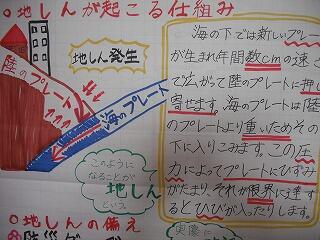 ・地しんが起こる仕組み
地しん発生
陸のプレート
海のプレート
このように
なることが
地しん
という
海の下では新しいプレー
が生まれ年間数cmの速さ
で広がって陸のプレートに押し
寄せます。海のプレートは「陸
のプレートより重いためその
下に入りこみます。この圧
力によってプレートにひずみ
がたまり、それが限界に達す
るとひびが入ったりします。
・地しんの備え
実際に